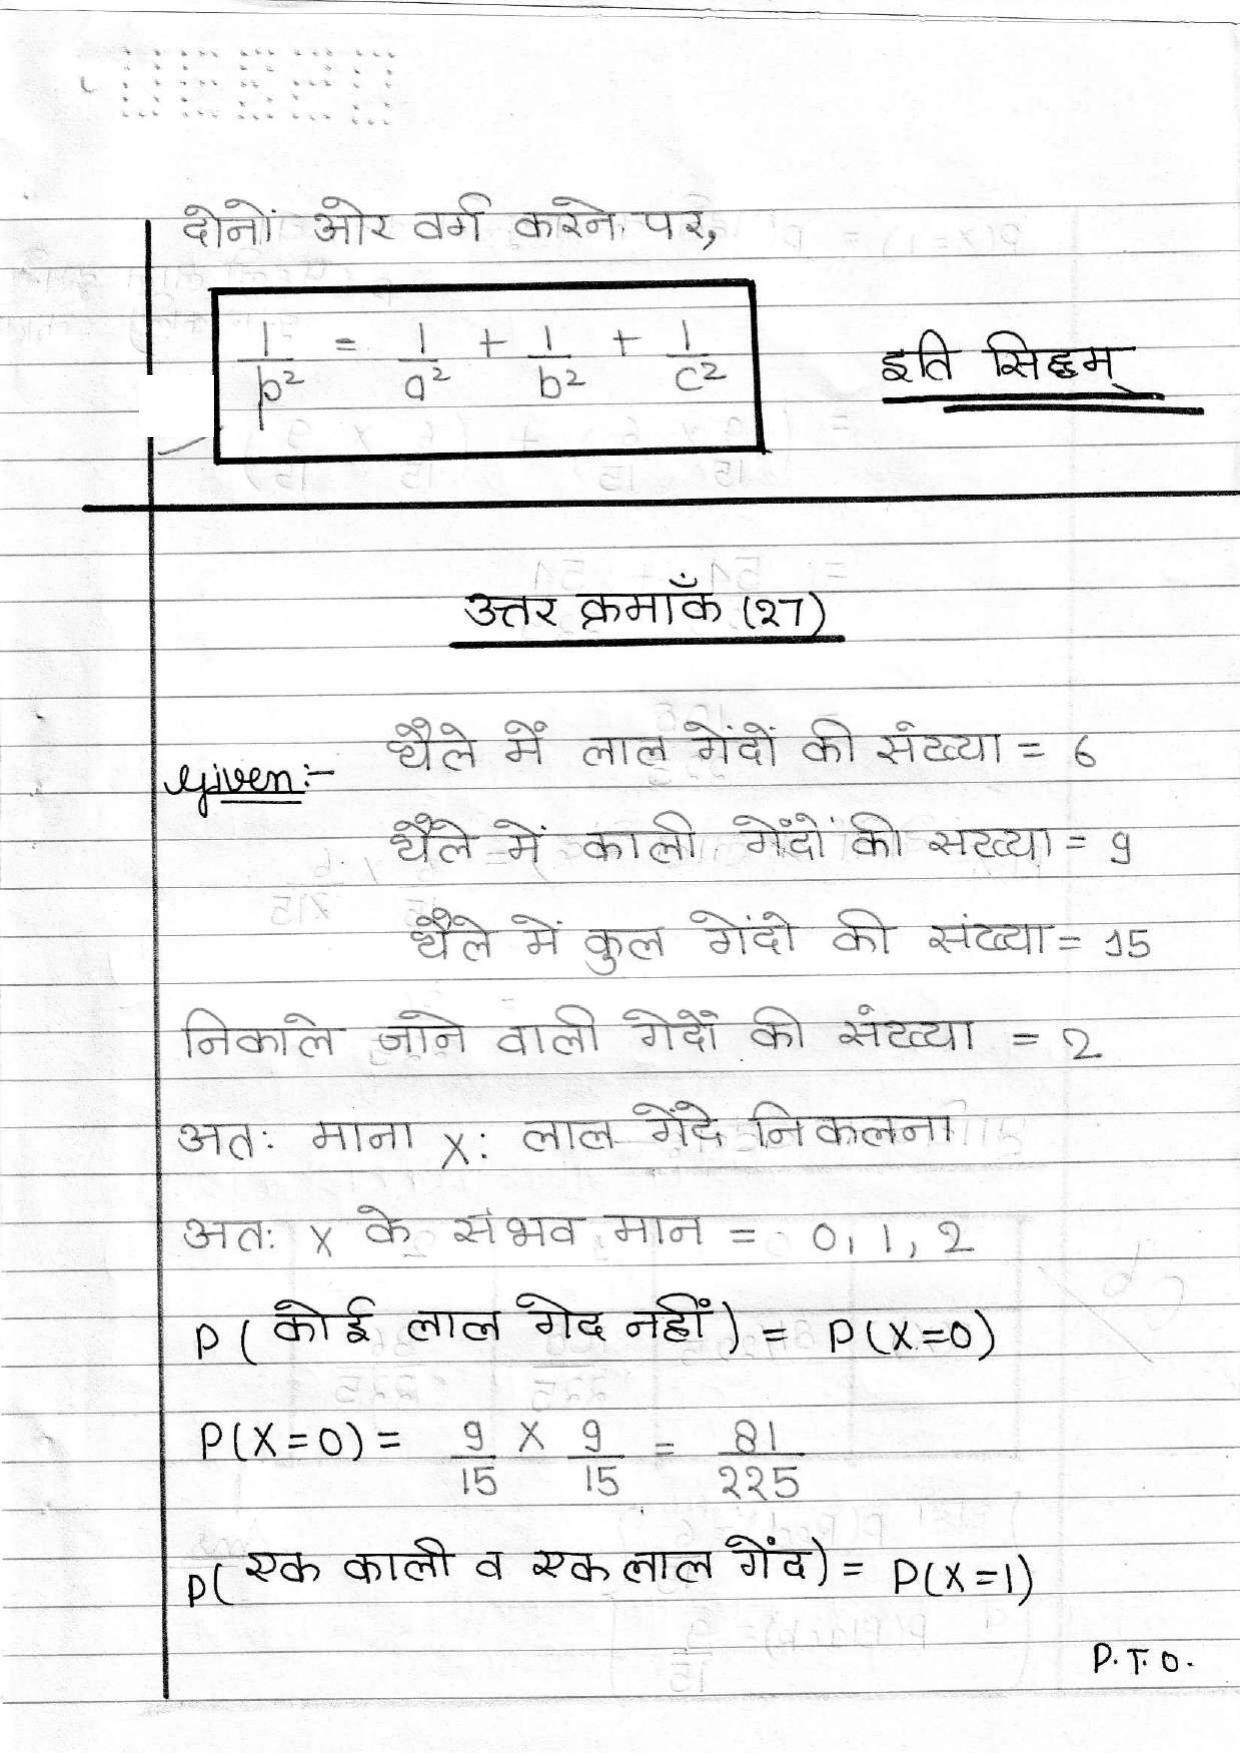 दोनों ओर वर्ग करने पर,
1/p² = 1/a² + 1/b² + 1/c²
इति सिद्धम्
उत्तर क्रमाँक (27)
Given:-
थैले में लाल गेंदों की संख्या = 6
थैले में काली गेंदों की सख्या = 9
थैले में कुल गेंदो की संख्या = 15
निकाले जाने वाली गेदों की संख्या = 2
अतः माना X: लाल गेंदे निकलना
अतः X के संभव मान = 0, 1, 2
P( कोई लाल गेद नहीं ) = P(X=0)
P(X=0) = 9/15 X 9/15 = 81/225
P( एक काली व एक लाल गेंद) = P(X=1)
P.T.O.